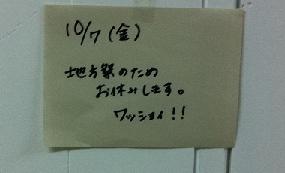 10/7(金)
地方祭のため
お休みします。
ワッショイ!!